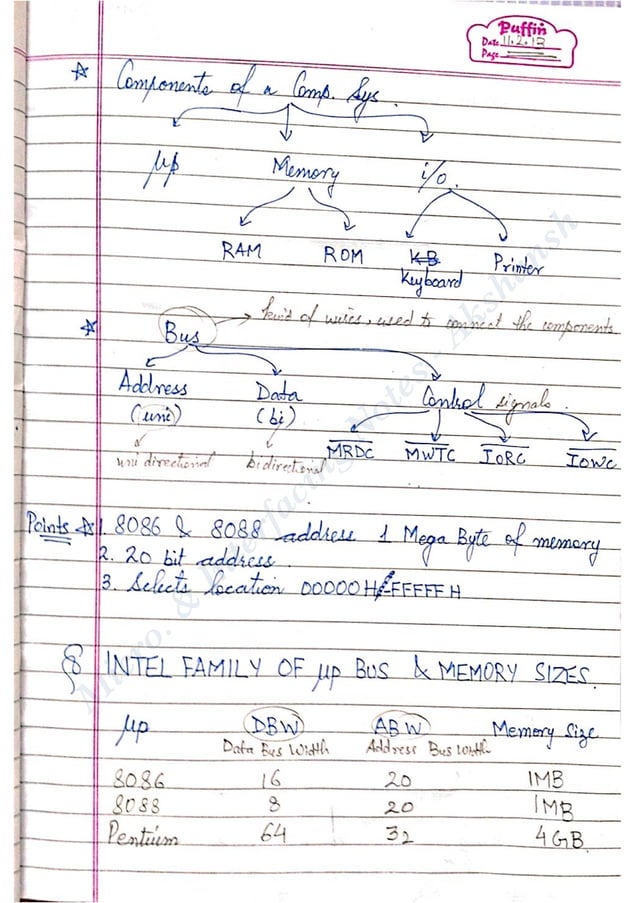 Puffin
Date 11.2.13
Page
Components of a Comp. Sys.
μp Memory i/o.
RAM ROM KB Printer
Keyboard
Bus → kind of wires, used to connect the components
Address Data Control signals.
(uni) (bi)
unidirectional bidirectional MRDC MWTC IORC IOWC
Points 1. 8086 & 8088 address 1 Mega Byte of memory
2. 20 bit address.
3. Selects location 00000H-FFFFFH
INTEL FAMILY OF μp BUS & MEMORY SIZES.
μp DBW ABW Memory Size
Data Bus Width Address Bus Width
8086 16 20 1MB
8088 8 20 1MB
Pentium 64 32 4GB
Micro. & Interfacing Notes - Akshansh